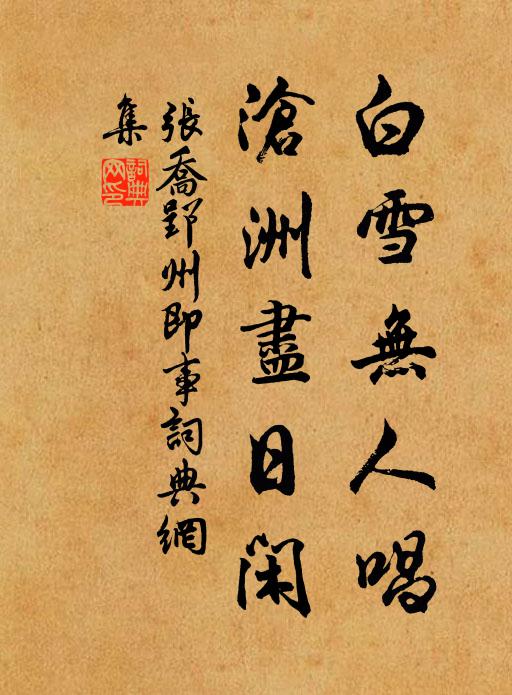 白雪無人唱
滄洲盡日閑
張喬郢州即事詞典網
集
詞典
网印